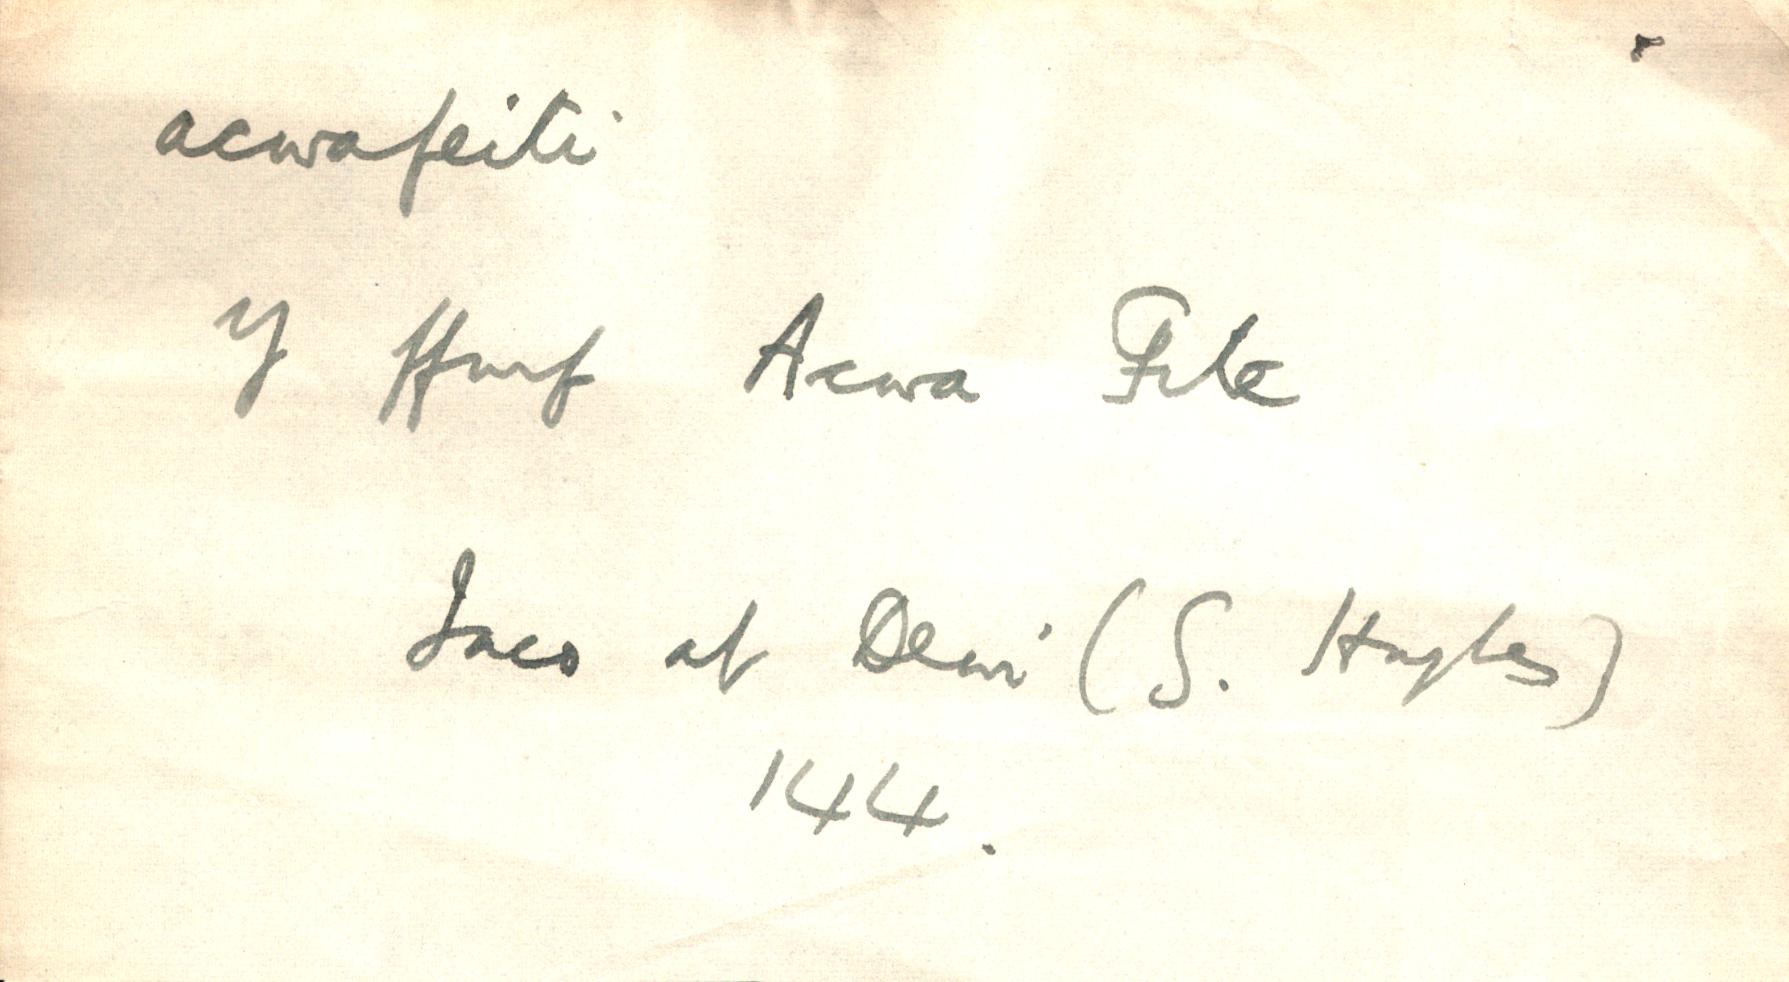 acwafeiti
Y ffurf Acwa Fite
Iaco ap Dewi (G. Hughes)
144.